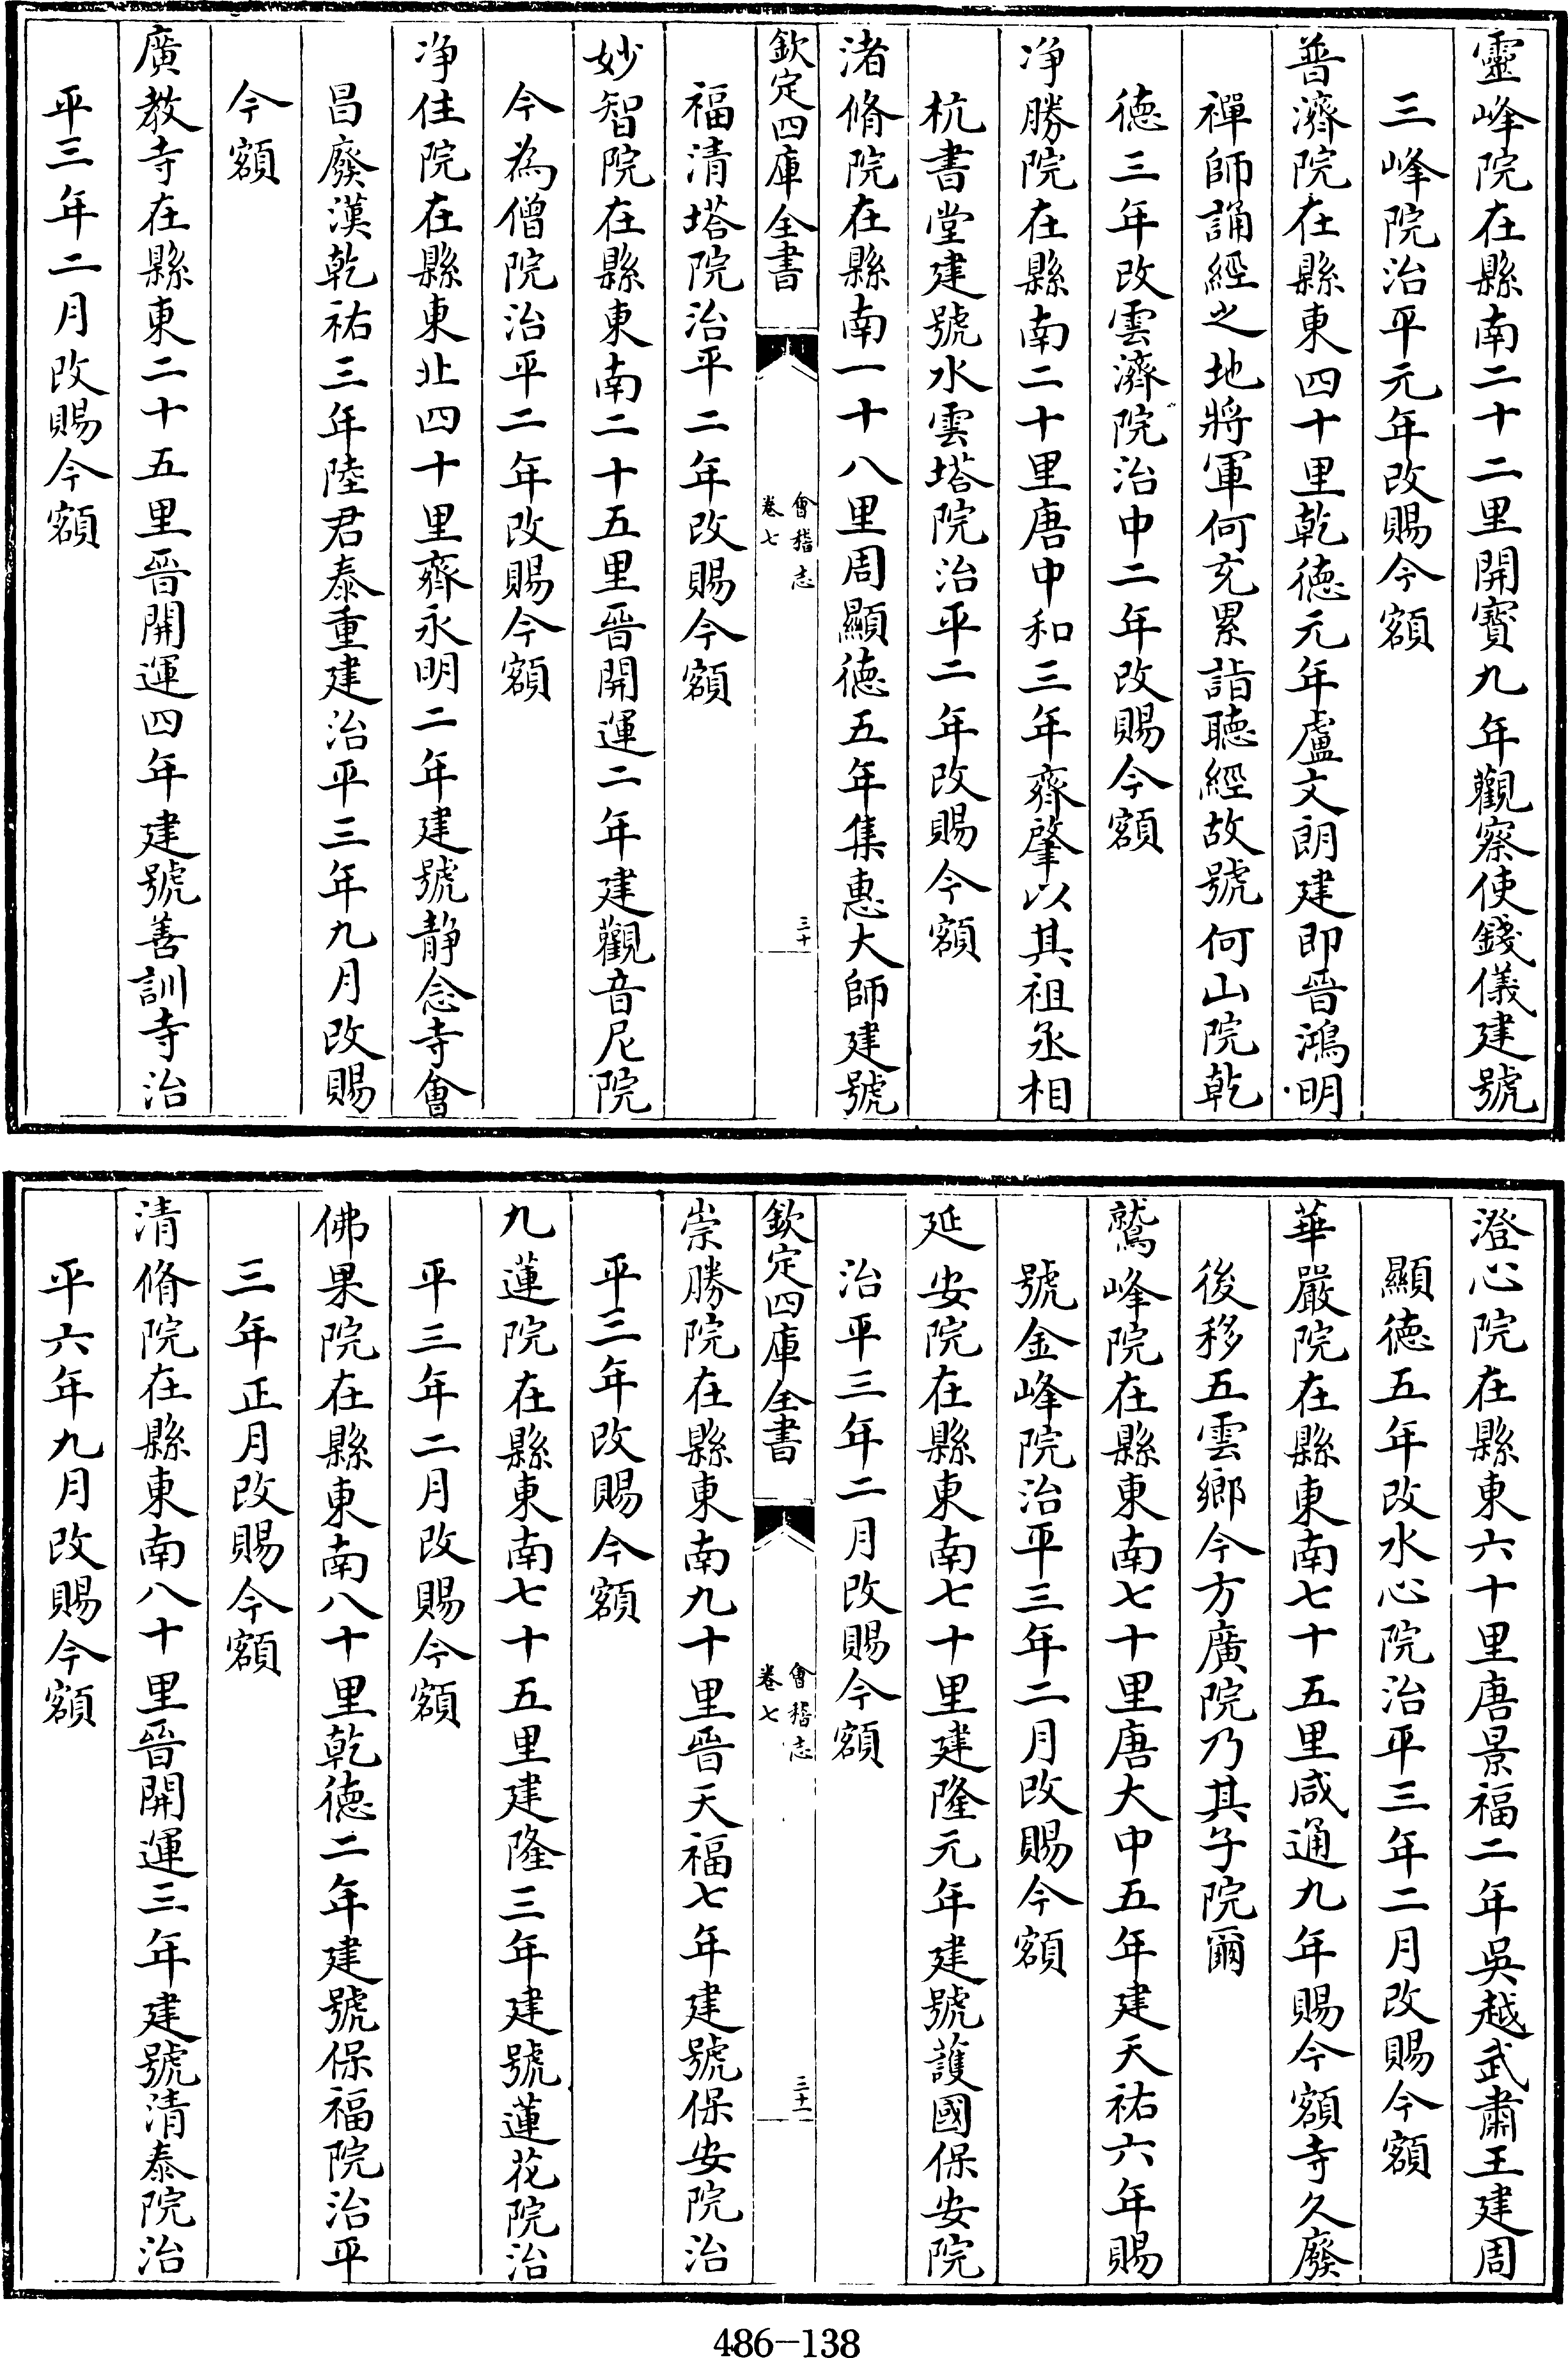 靈峰院在縣南二十二里開寳九年觀察使錢儀建號
三峰院治平元年改賜今額
普濟院在縣東四十里乾徳元年盧文朗建即晉鴻明
禪師誦經之地將軍何充累詣聽經故號何山院乾
徳三年改雲濟院治中二年改賜今額
净勝院在縣南二十里唐中和三年齊肇以其祖丞相
杭書堂建號水雲塔院治平二年改賜今額
渚脩院在縣南一十八里周顯徳五年集惠大師建號
欽定四庫全書
會稽志
卷七
三十
福清塔院治平二年改賜今額
妙智院在縣東南二十五里晉開運二年建觀音尼院
今為僧院治平二年改賜今額
净住院在縣東北四十里齊永明二年建號静念寺會
昌廢漢乾祐三年陸君泰重建治平三年九月改賜
今額
廣教寺在縣東二十五里晉開運四年建號善訓寺治
平三年二月改賜今額
澄心院在縣東六十里唐景福二年吳越武肅王建周
顯徳五年改水心院治平三年二月改賜今額
華嚴院在縣東南七十五里咸通九年賜今額寺久廢
後移五雲鄉今方廣院乃其子院爾
鷲峰院在縣東南七十里唐大中五年建天祐六年賜
號金峰院治平三年二月改賜今額
延安院在縣東南七十里建隆元年建號護國保安院
治平三年二月改賜今額
欽定四庫全書
會稽志
卷七
三十一
崇勝院在縣東南九十里晉天福七年建號保安院治
平三年改賜今額
九蓮院在縣東南七十五里建隆三年建號蓮花院治
平三年二月改賜今額
佛果院在縣東南八十里乾徳二年建號保福院治平
三年正月改賜今額
清脩院在縣東南八十里晉開運三年建號清泰院治
平六年九月改賜今額
486-138